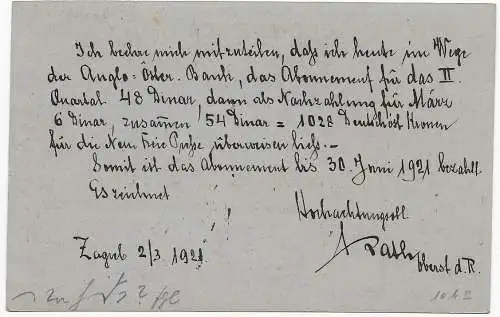 Ich beehre mich mitzuteilen, daß ich heute im Wege
der Anglo-Öster. Bank, das Abonnement für das II
Quartal 48 Dinar, dann als Nachzahlung für März
6 Dinar, zusammen 54 Dinar = 1028 Deutschöst Kronen
für die Neue Freie Presse überweisen ließ.-
Somit ist das Abonnement bis 30. Juni 1921 bezahlt.
Es zeichnet
Hochachtungsvoll
Zagreb 2/3 1921.
Oberst d. R.